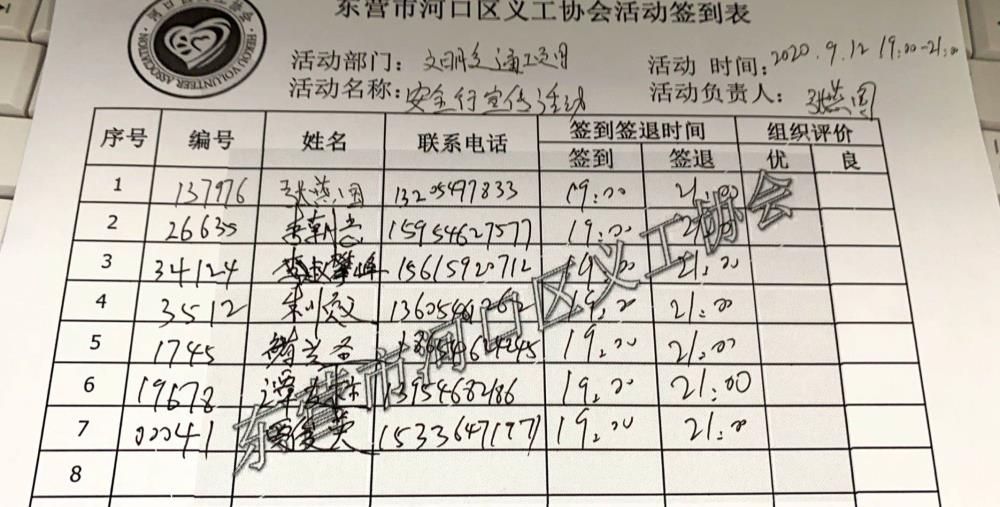 东营市河口区义工协会活动签到表
HEKOU VOLUNTEER ASSOCIATION
活动部门：文明交通 活动 时间：2020.9.12 19:00-21:00
活动名称：安全行宣传活动 活动负责人：张燕国
序号 编号 姓名 联系电话 签到签退时间 组织评价
签到 签退 优 良
1 137976 张燕国 13205497833 19:00 21:00
2 26635 李朝 15954627577 19:00 21:00
3 34124 15615920712 19:00 21:00
4 3512 朱小 19:00 21:00
5 1745 19:00 21:00
6 19678 13954682186 19:00 21:00
7 00041 英 19:00 21:00
8
东营市河口区义工协会